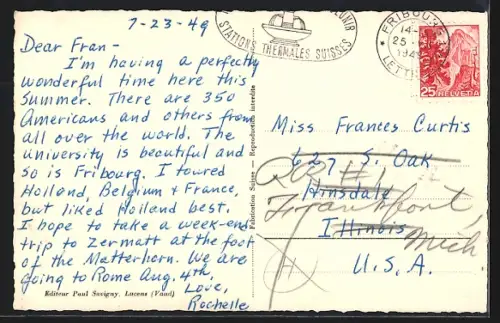 7-23-49
Dear Fran-
I'm having a perfectly
wonderful time here this
Summer. There are 350
Americans and others from
all over the world. The
university is beautiful and
so is Fribourg. I toured
Holland, Belgium & France,
but liked Holland best.
I hope to take a week-end
trip to Zermatt at the foot
of the Matterhorn. We are
going to Rome Aug. 4th.
Love,
Rochelle
Editeur Paul Savigny, Lucens (Vaud)
Fabrication Suisse - Reproduction interdite
STATIONS THERMALES SUISSES
FRIBOURG
14-
25
194
25 HELVETIA
Miss Frances Curtis
627 S. Oak
Hinsdale
Illinois
U.S.A.
RR #1
Frankfort,
Mich.